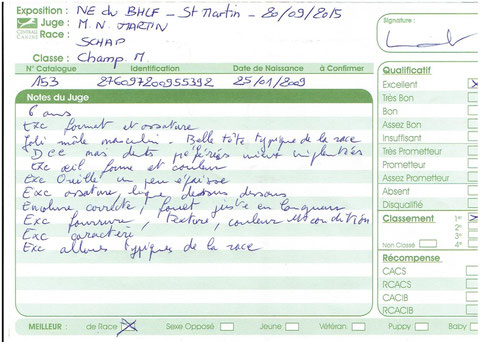 Exposition : NE du BHLF - St Martin - 20/09/2015
Signature :
CENTRALE CANINE
Juge : M. N. MARTIN
Race : SCHAP
Classe : Champ. M
N° Catalogue Identification Date de Naissance à Confirmer
153 276097200955392 25/01/2009
Notes du Juge
6 ans
Exc format et ossature
Joli mâle masculin. Belle tête typique de la race
DCC mas dents
Exc œil forme et couleur
Exc Oreille un peu épaisse
Exc ossature, ligne dessus dessous
Encolure correcte, fouet juste en longueur
Exc fourrure, texture, couleur et condition
Exc caractère
Exc allures typiques de la race
Qualificatif
Excellent X
Très Bon
Bon
Assez Bon
Insuffisant
Très Prometteur
Prometteur
Assez Prometteur
Absent
Disqualifié
Classement 1er
2e
3e
Non Classé 4e
Récompense
CACS
RCACS
CACIB
RCACIB
MEILLEUR : de Race X Sexe Opposé Jeune Vétéran Puppy Baby